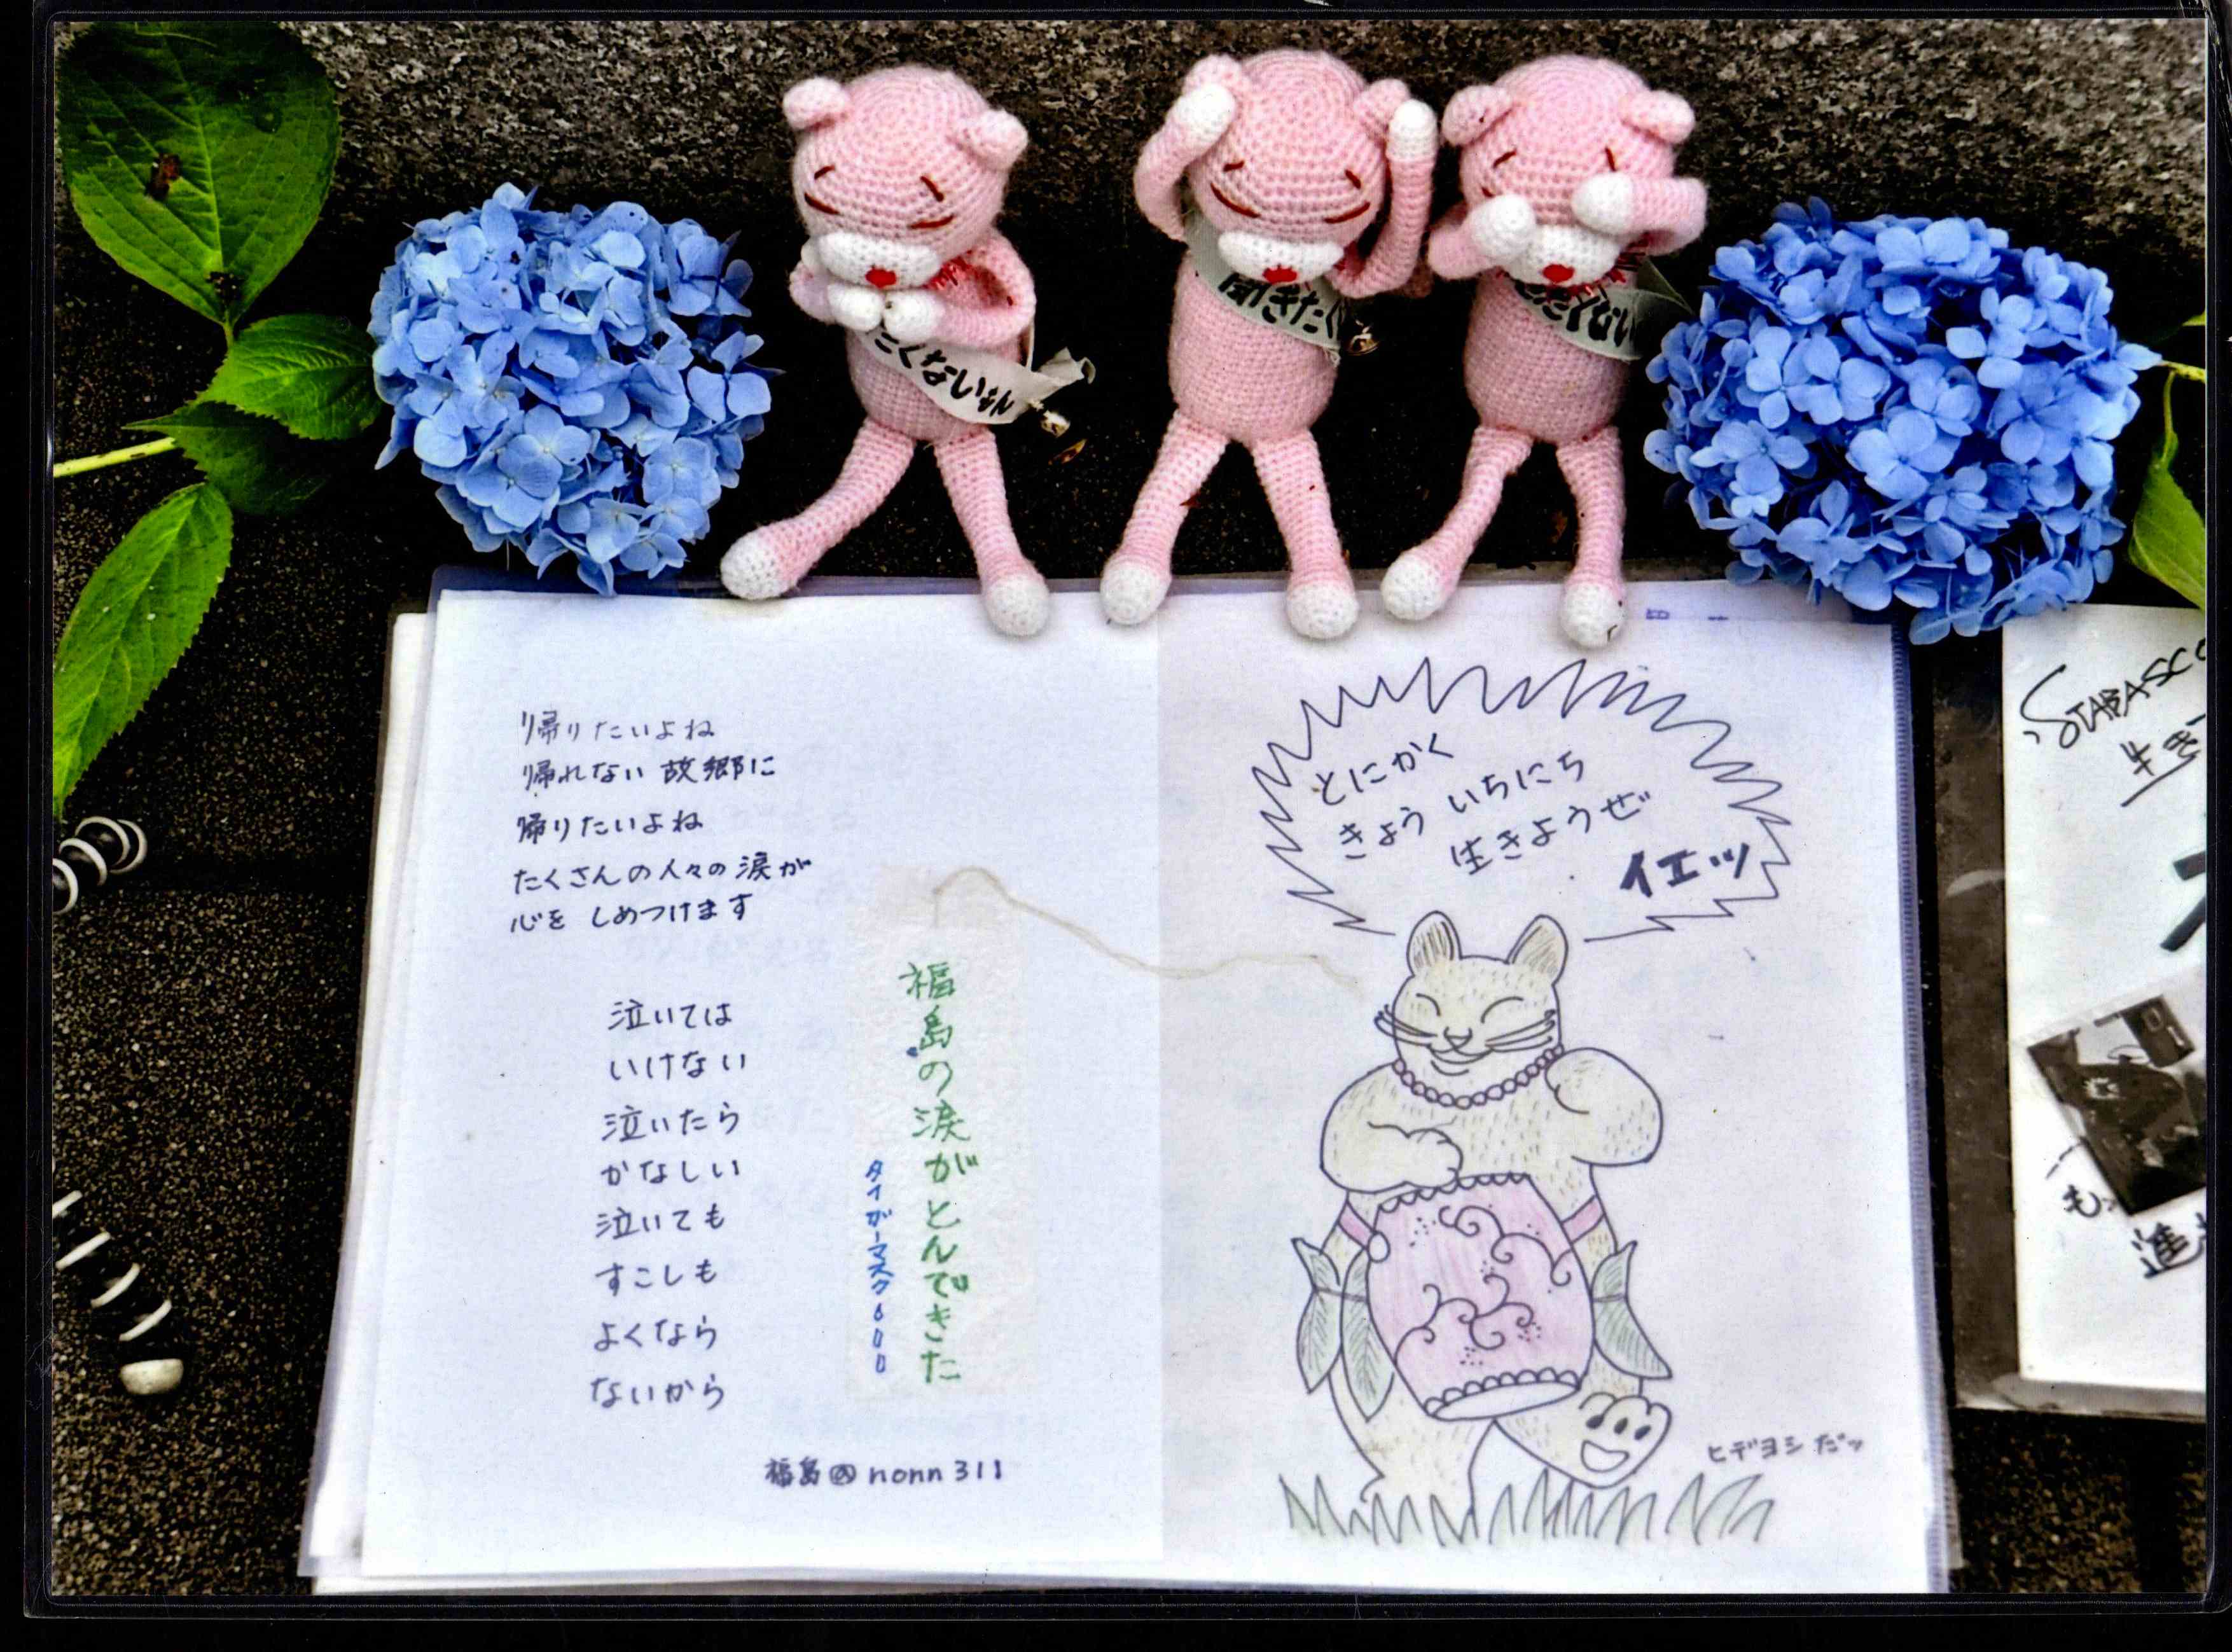 たくない
聞きたく
たくない
帰りたいよね
帰れない故郷に
帰りたいよね
たくさんの人々の涙が
心を しめつけます
泣いては
いけない
泣いたら
かなしい
泣いても
すこしも
よくなら
ないから
福島@nonn311
福島の涙がとんできた
タイガーマスク600
とにかく
きょう いちにち
生きようぜ
イエッ
ヒデヨシだッ
STABASCO
生き
も
進